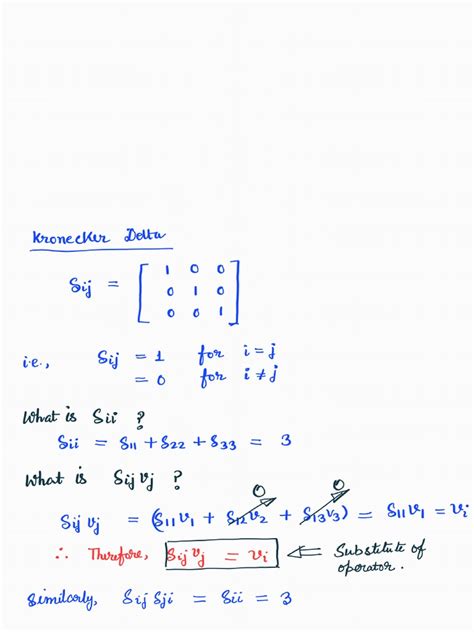 Kronecker Delta
δij = [ 1 0 0
0 1 0
0 0 1 ]
i.e., δij = 1 for i = j
= 0 for i ≠ j
What is δii ?
δii = δ11 + δ22 + δ33 = 3
What is δij vj ?
0 0
δij vj = (δ11v1 + δ12v2 + δ13v3) = δ11v1 = vi
∴ Therefore, δij vj = vi ⇐ Substitute of
operator.
Similarly, δij δji = δii = 3